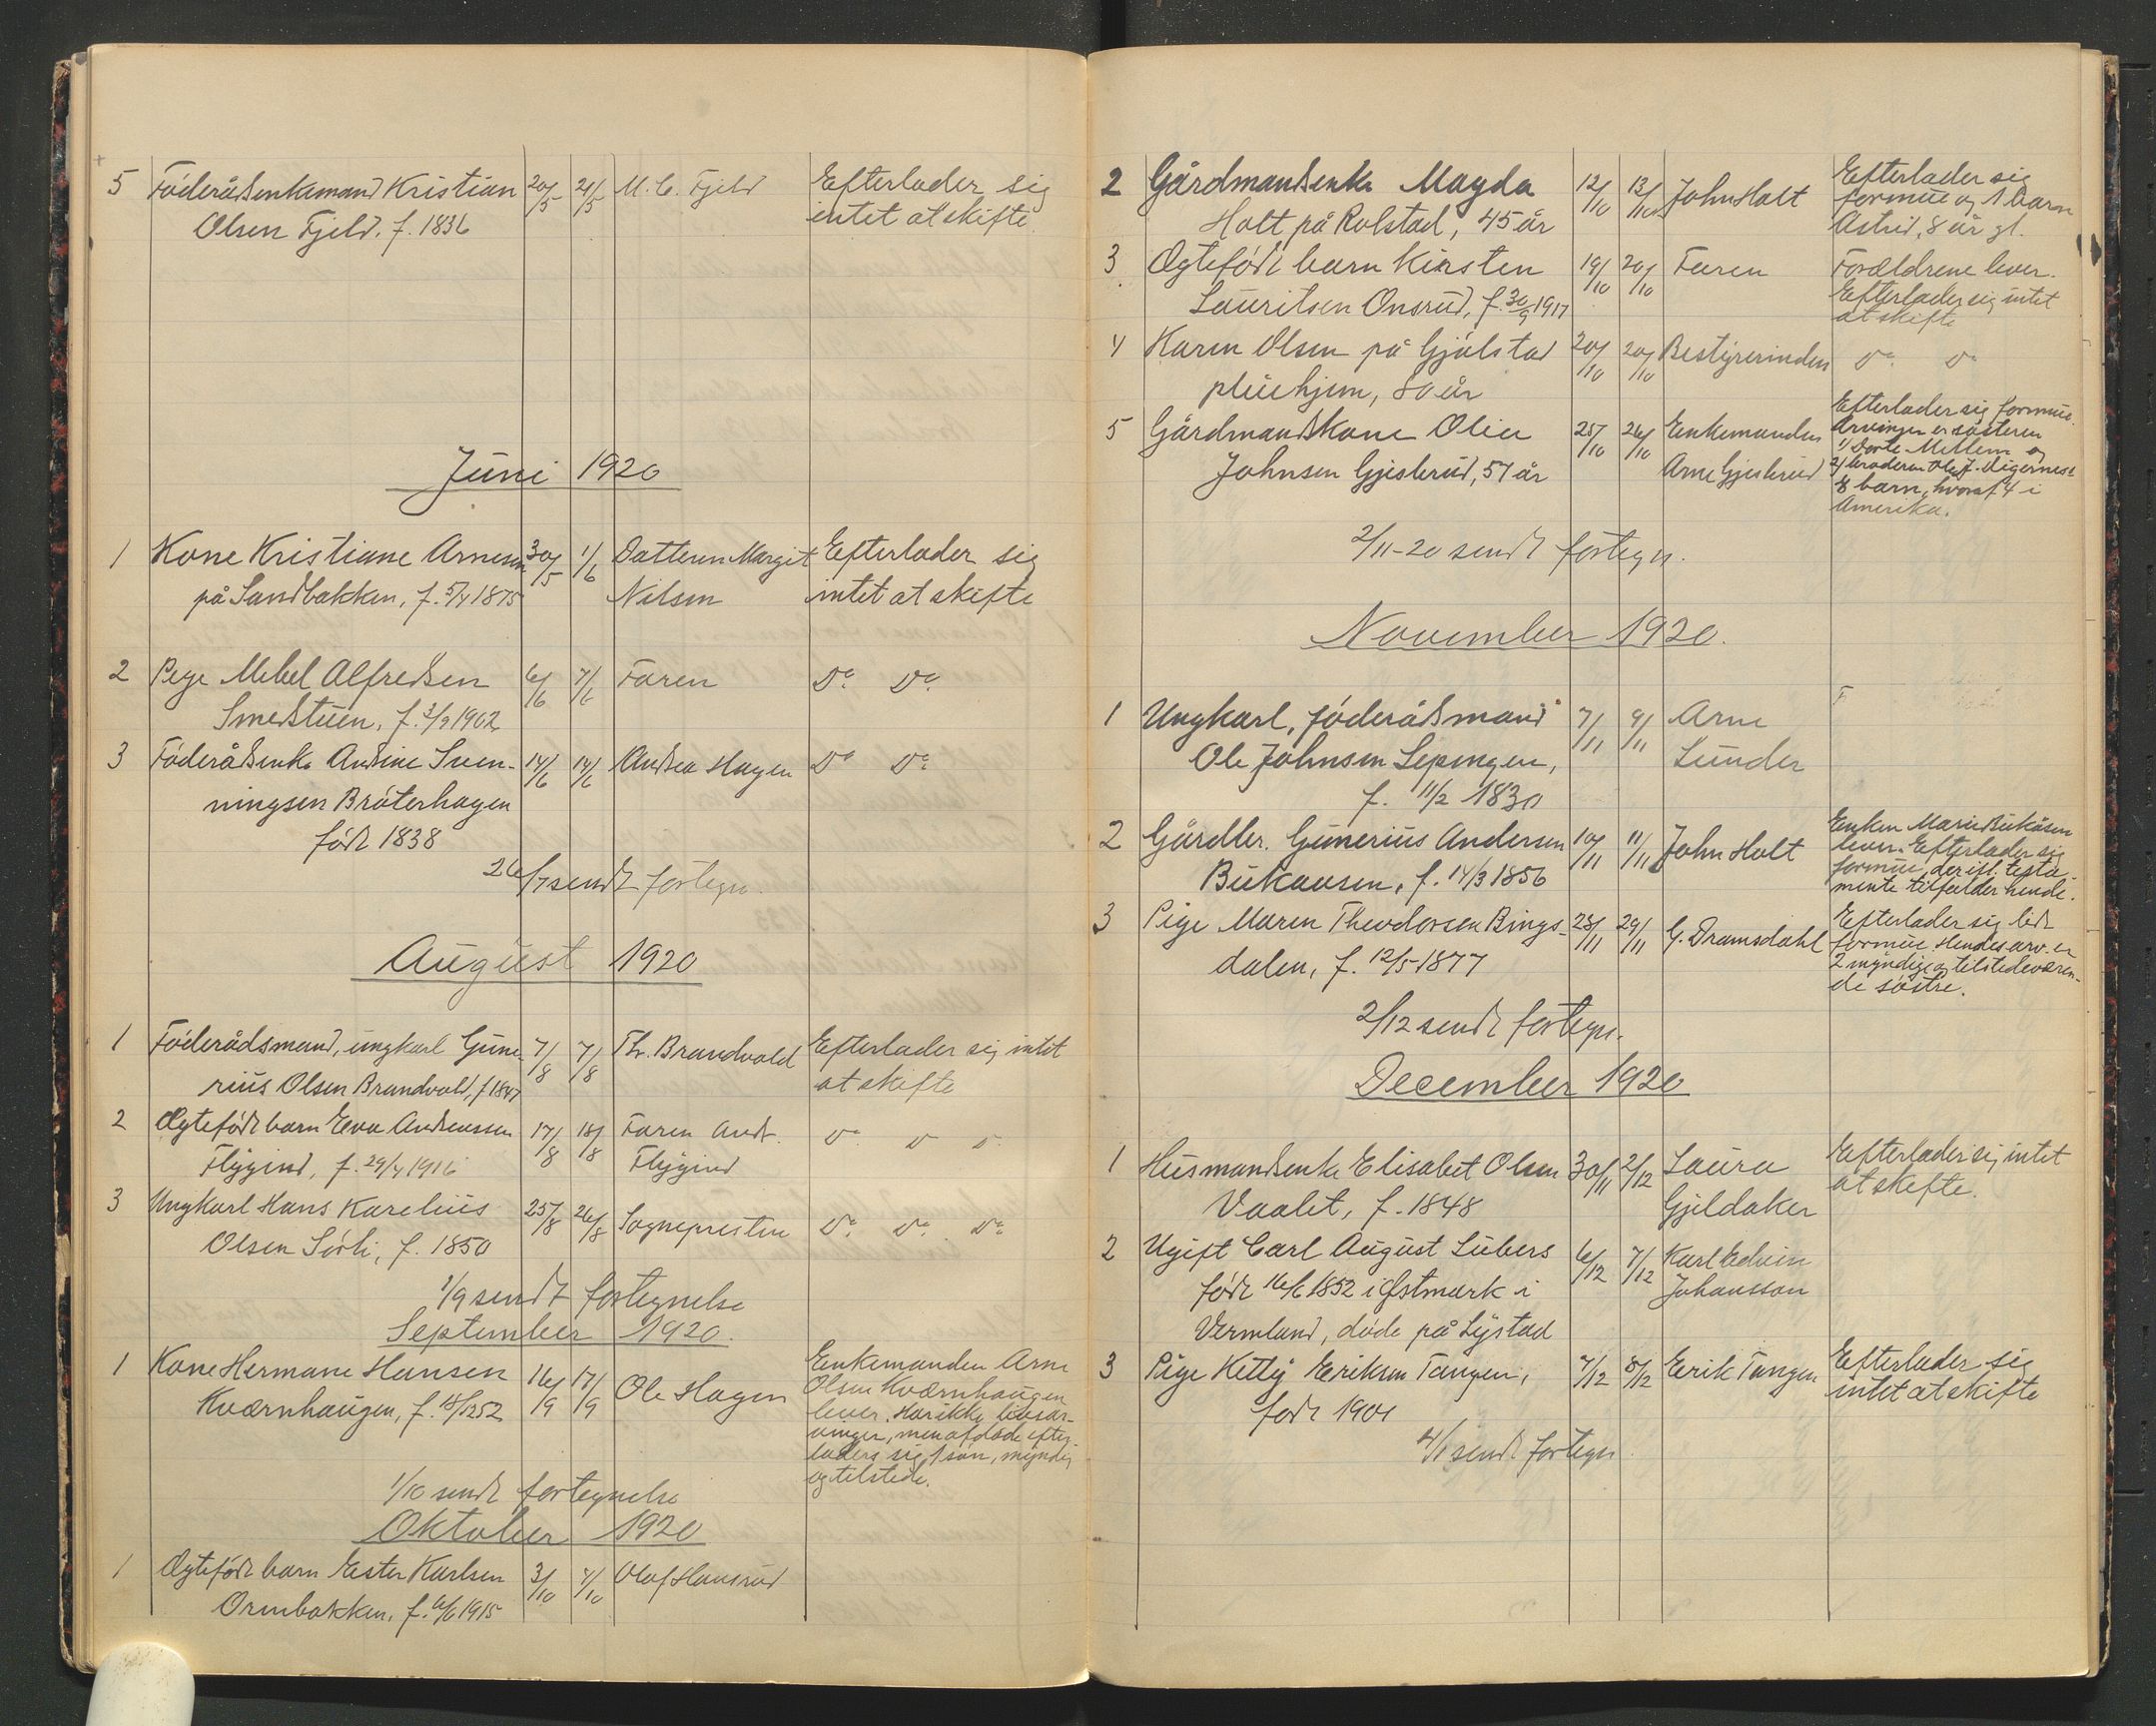 5 Föderådsenkemand Kristian 20/5 21/5 M. C. Fjeld Efterlader sig
Olsen Fjeld. f. 1836 intet at skifte
Juni 1920
1 Kone Kristiane Arnesen 30/5 1/6 Datteren Margit Efterlader sig
på Sandbakken, f. 5/4 1875 Nilsen intet at skifte
2 Pege Mebel Alfredsen 6/6 7/6 Faren Do. Do.
Smedstuen, f. 3/9 1902
3 Föderådsenke Andine Sven- 14/6 14/6 Andrea Hagen Do Do.
ningsen Bråterhagen
född 1838
26/7 sendt fortegn.
August 1920
1 Föderådsmand, ungkarl Gune- 7/8 7/8 Th. Brandvold Efterlader sig intet
rius Olsen Brandvold, f 1847 at skifte
2 Ægtefödt barn Eva Andreassen 17/8 18/8 Faren Andr.
Flÿgind, f. 29/4 1916 Flÿgind
3 Ungkarl Hans Karelius 25/8 26/8 Sognepresten Do. Do. Do.
Olsen Sörli, f. 1850
1/9 sendt fortegnelse
September 1920.
1 Kone Hermane Hansen 16/9 17/9 Ole Hagen Enkemanden Arne
Kværnhaugen, f. 18/12 52 Olsen Kværnhaugen
lever. Har ikke livsar-
vinger, men afdöde efter-
laders sig 1 sön, myndig
og tilstede.
1/10 sendt fortegnelse
Oktober 1920
1 Ægtefödt barn Ester Karlsen 3/10 4/10 Olaf Hansrud
Ormbakken, f. 6/6 1915
2 Gårdmandsenke Magda 12/10 13/10 John Holt Efterlader sig
Holt på Rolstad, 45 år formue og 1 barn
Astrid, 8 år gl.
3 Ægtefödt barn Kirsten 19/10 20/10 Faren Forældrene lever.
Lauritsen Onsrud, f. 30/9 1917 Efterlader sig intet
at skifte
4 Karen Olsen på Gjölstad 20/10 20/10 Bestÿrerinden Do. Do
pleiehjem, 80 år
5 Gårdmandskone Olea 25/10 26/10 Enkemanden Efterlader sig formue.
Johnsen Gjeslerud, 57 år Arne Gjeslerud Arvinger er söstern
1/ Dorte Mellem og
2/ broderen Ole J.
8 barn, hvoraf 4 i
Amerika.
2/11-20 sendt fortegn.
November 1920.
1 Ungkarl, föderådsmand 7/11 9/11 Arne
Ole Johnsen Sepengen, Lunder
f. 11/2 1830
2 Gårdbr. Gunerius Andersen 10/11 11/11 John Holt Enken Marie Bukåsen
Bukaasen, f. 14/3 1856 lever. Efterlader sig
formue, der ifl. testa-
mente tilfalder hende.
3 Pige Maren Theodorsen Bings- 28/11 29/11 G. Dramsdahl Efterlader sig lidt
dalen, f. 12/5 1877 formue. Hendes arv. er
2 mÿndige og tilstedeværen-
de söstre.
2/12 sendt fortegn.
December 1920
1 Husmandsenke Elisabet Olsen 30/11 2/12 Laura Efterlader sig intet
Vaalet, f. 1848 Gjeldaker at skifte.
2 Ugift Carl August Lubers 6/12 7/12 Karl Edvin
född 16/6 1852 i Östmark i Johansson
Vermland, döde på Lÿstad
3 Pige Kettÿ Eriksen Tangen, 7/12 8/12 Eerik Tangen Efterlader sig
född 1901 intet at skifte
4/1 sendt fortegn